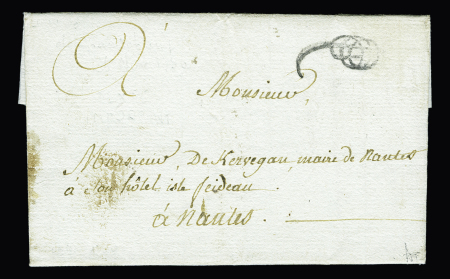 Monsieur,
Monsieur, De Kervegan, maire de Nantes
à son hôtel isle feideau.
à Nantes.